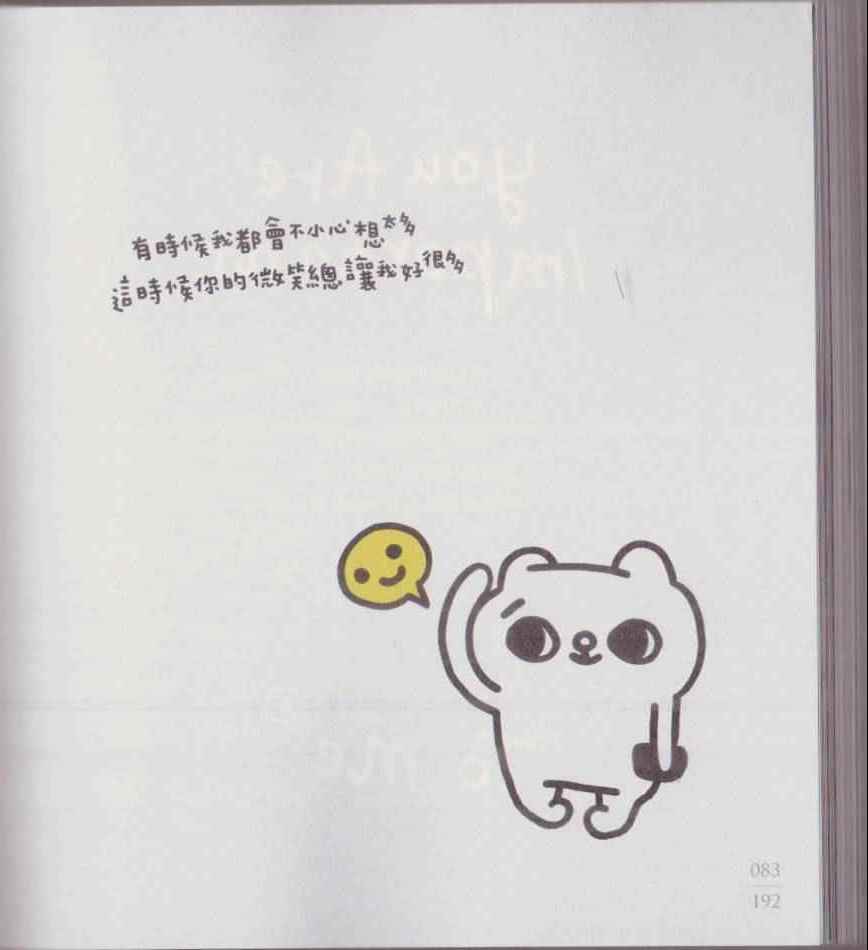 有時候我都會不小心想太多
這時候你的微笑總讓我好很多
083
192